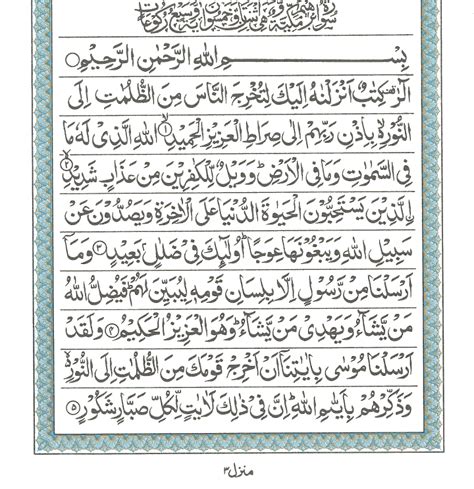 سورة ابرهيم مكية وهي اثنتان وخمسون آية وسبع ركوعات
بِسْمِ اللّٰهِ الرَّحْمٰنِ الرَّحِيْمِ
الٓرٰ كِتٰبٌ اَنْزَلْنٰهُ اِلَيْكَ لِتُخْرِجَ النَّاسَ مِنَ الظُّلُمٰتِ اِلَى
النُّوْرِ ۙ بِاِذْنِ رَبِّهِمْ اِلٰى صِرَاطِ الْعَزِيْزِ الْحَمِيْدِ ۙ﴿۱﴾ اللّٰهِ الَّذِىْ لَهٗ مَا
فِى السَّمٰوٰتِ وَمَا فِى الْاَرْضِ ؕ وَوَيْلٌ لِّلْكٰفِرِيْنَ مِنْ عَذَابٍ شَدِيْدِ ۙ﴿۲﴾
اِلَّذِيْنَ يَسْتَحِبُّوْنَ الْحَيٰوةَ الدُّنْيَا عَلَى الْاٰخِرَةِ وَيَصُدُّوْنَ عَنْ
سَبِيْلِ اللّٰهِ وَيَبْغُوْنَهَا عِوَجًا ؕ اُولٰٓئِكَ فِىْ ضَلٰلٍۭ بَعِيْدٍ ﴿۳﴾ وَمَآ
اَرْسَلْنَا مِنْ رَّسُوْلٍ اِلَّا بِلِسَانِ قَوْمِهٖ لِيُبَيِّنَ لَهُمْ ؕ فَيُضِلُّ اللّٰهُ
مَنْ يَّشَآءُ وَيَهْدِىْ مَنْ يَّشَآءُ ؕ وَهُوَ الْعَزِيْزُ الْحَكِيْمُ ﴿۴﴾ وَلَقَدْ
اَرْسَلْنَا مُوْسٰى بِاٰيٰتِنَآ اَنْ اَخْرِجْ قَوْمَكَ مِنَ الظُّلُمٰتِ اِلَى النُّوْرِ ۙ
وَذَكِّرْهُمْ بِاَيّٰىمِ اللّٰهِ ؕ اِنَّ فِىْ ذٰلِكَ لَاٰيٰتٍ لِّكُلِّ صَبَّارٍ شَكُوْرٍ ﴿۵﴾
منزل ۳